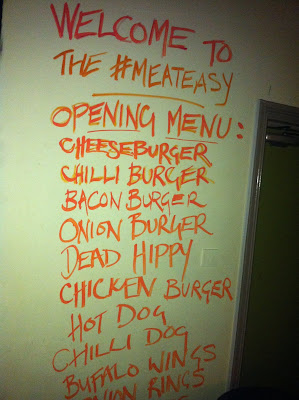 WELCOME TO
THE #MEATEASY
OPENING MENU:
CHEESEBURGER
CHILLI BURGER
BACON BURGER
ONION BURGER
DEAD HIPPY
CHICKEN BURGER
HOT DOG
CHILLI DOG
BUFFALO WINGS
ONION RINGS